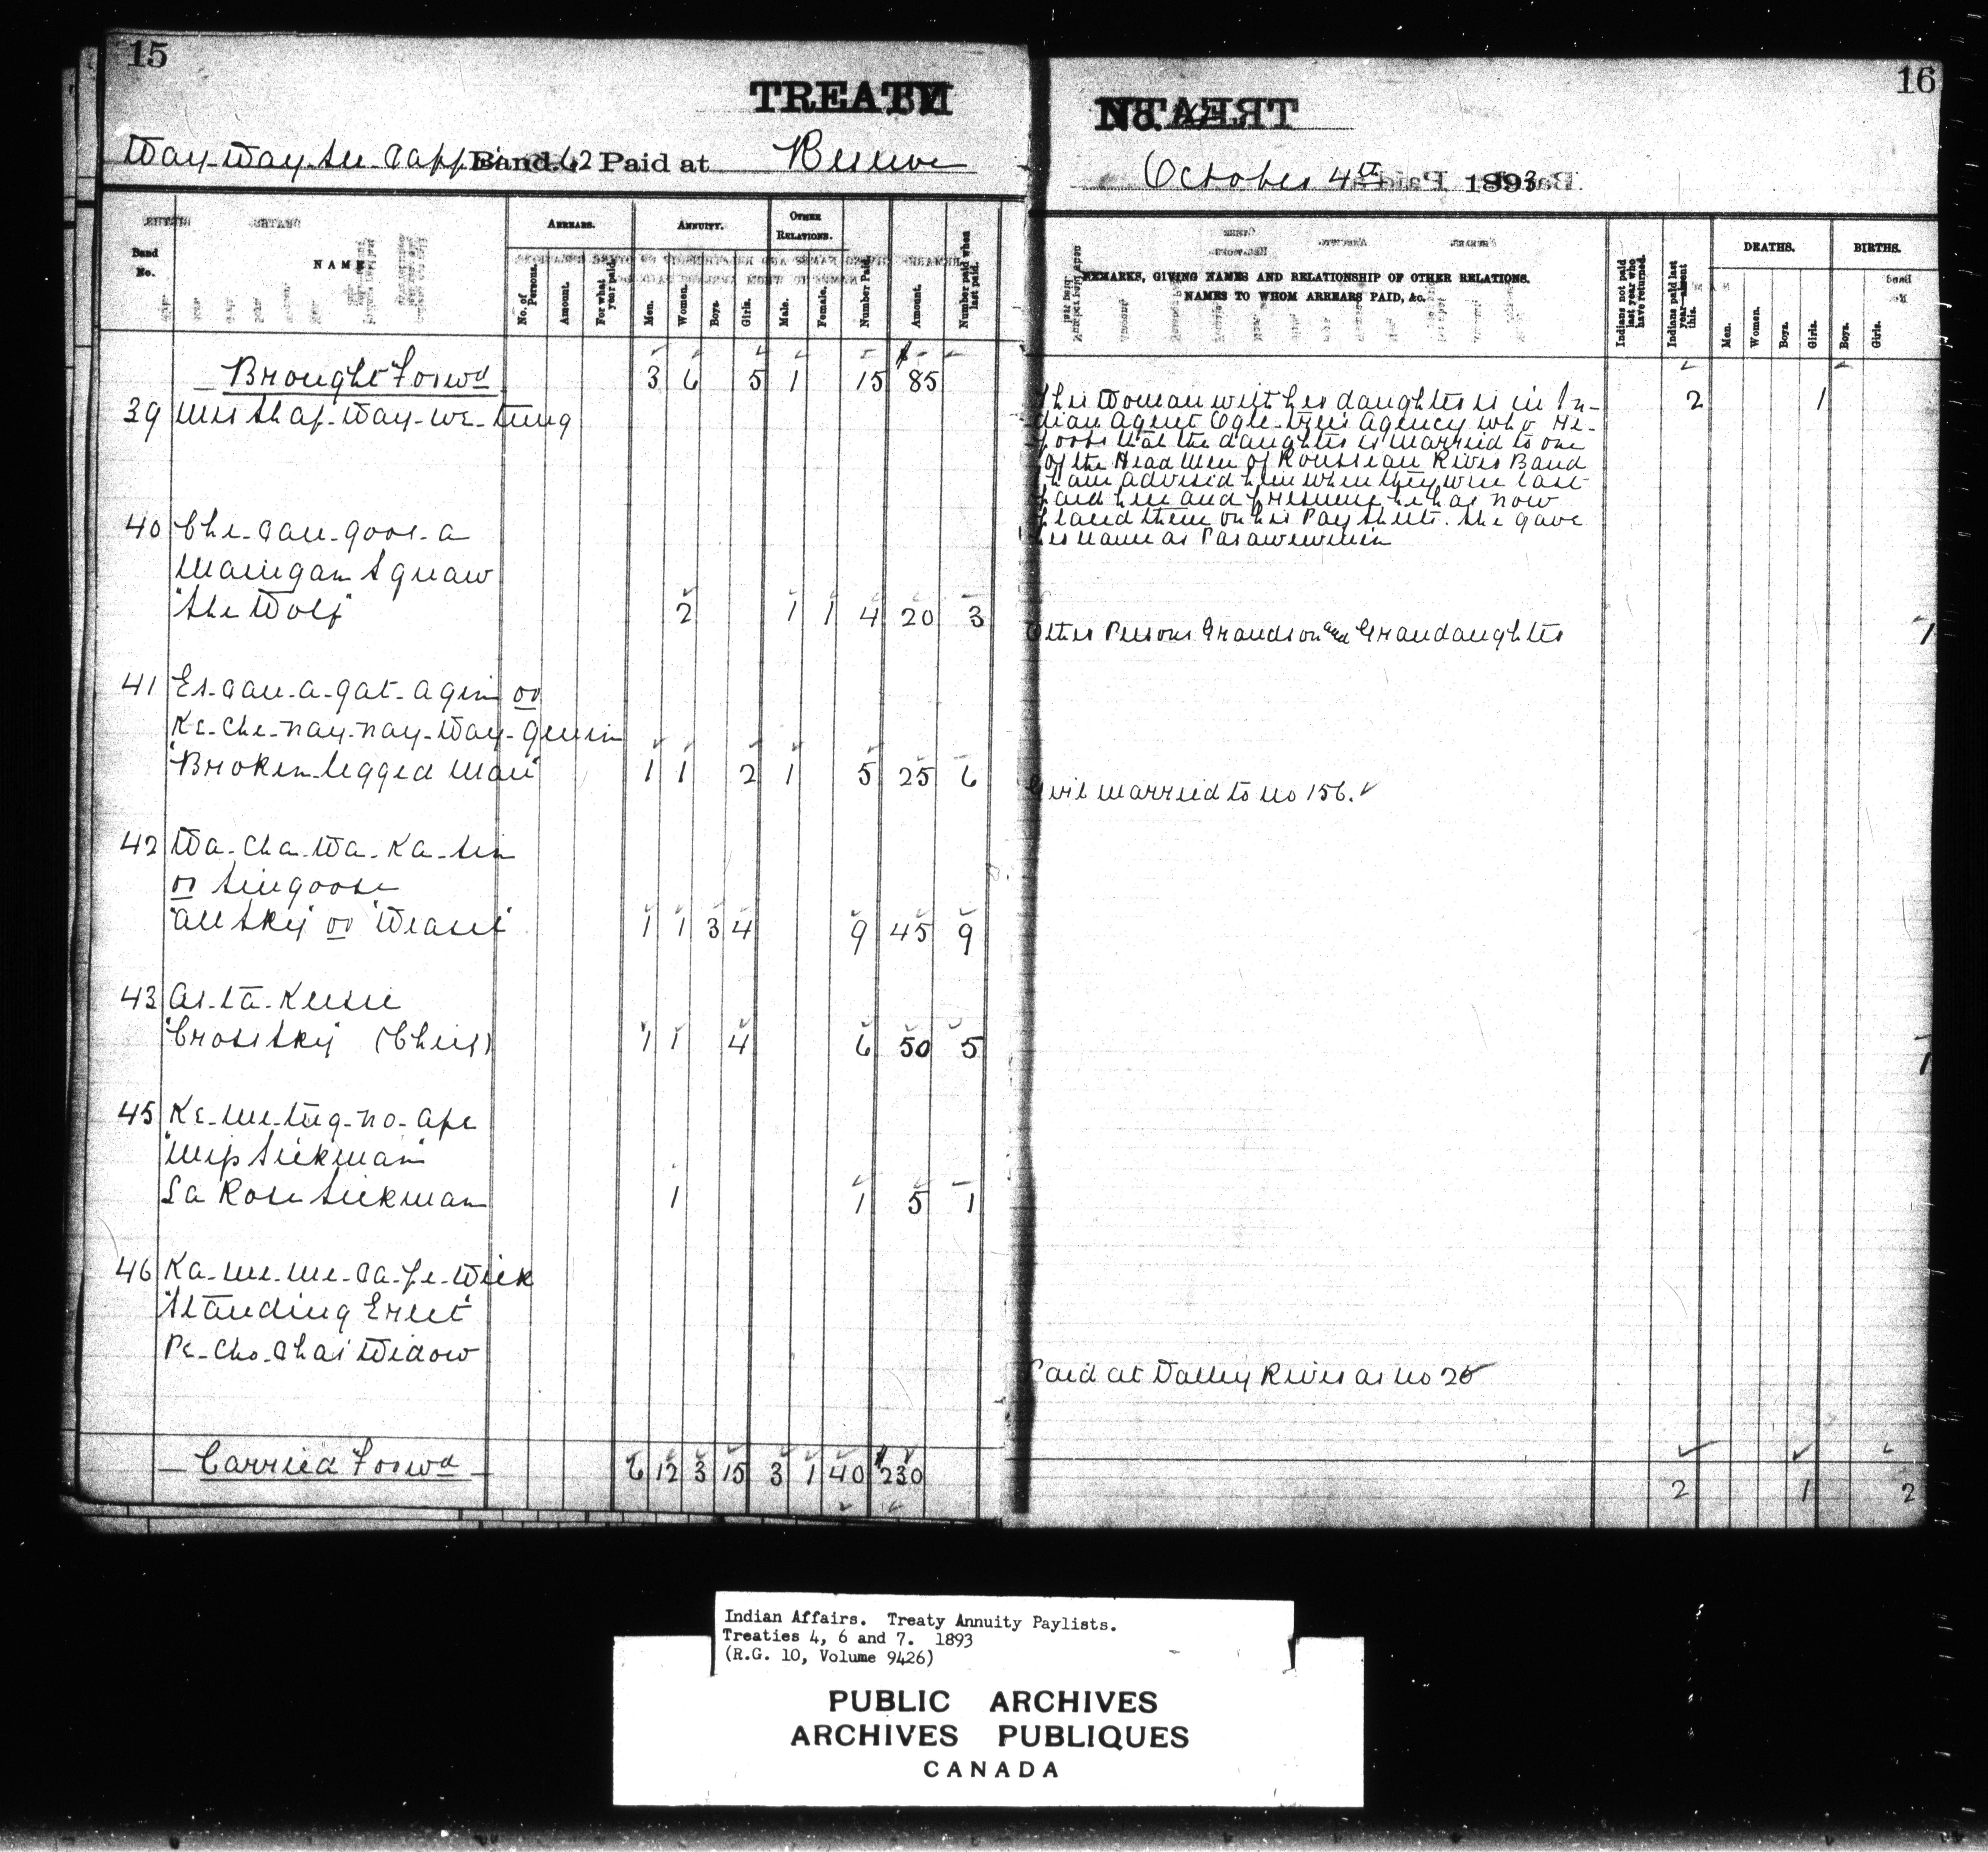 15
TREATY
Way-Way-see-Cappo Band. 62 Paid at Reserve
Band No.
NAME
ARREARS.
No. of Persons.
Amount.
For what year paid.
ANNUITY.
Men.
Women.
Boys.
Girls.
OTHER RELATIONS.
Male.
Female.
Number Paid.
Amount.
Number paid when last paid.
Brought Forwd 3 6 5 1 15 $85
39
40 Che-cau-goos-a
Maingan Squaw
"The Wolf" 2 1 1 4 20 3
41 Es-cau-a-gat-agin or
Ke-che-nay-nay-Way-
"Broken legged Man" 1 1 2 1 5 25 6
42 Wa-cha-Wa-Ka-sin
or Singoose
or "Weasel" 1 1 3 4 9 45 9
43 As-ta-Keesic
"Cross Sky" (Chief) 1 1 4 6 50 5
45 Ke-me-tug-no-ape
Sickman"
La Rose Sickman 1 1 5 1
46 Ka-me-me-ca-pe-Wick
"Standing Erect"
Pe-cho-chas Widow
Carried Forwd 6 12 3 15 3 1 40 $230
16
No.
October 4th 1893
REMARKS, GIVING NAMES AND RELATIONSHIP OF OTHER RELATIONS.
NAMES TO WHOM ARREARS PAID, &c.
Indians not paid last year who have returned.
Indians paid last year absent this.
DEATHS.
Men.
Women.
Boys.
Girls.
BIRTHS.
Boys.
Girls.
This Woman with her daughter is in In- 2 1
dian Agent Ogletree's Agency who re-
ports that the daughter is married to one
of the Head Men of Rousseau River Band
I have advised him when they were last
paid here and presume he has now
placed them on his Pay Sheets. She gave
her name as
Other Persons Grandson and Grandaughter 1
Girl married to No 156.
1
Paid at Valley River as No 26
2 1 2
Indian Affairs. Treaty Annuity Paylists.
Treaties 4, 6 and 7. 1893
(R.G. 10, Volume 9426)
PUBLIC ARCHIVES
ARCHIVES PUBLIQUES
CANADA